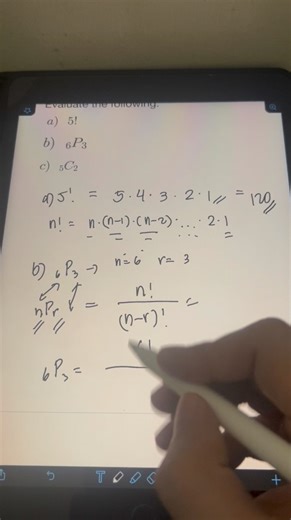 Evaluate the following:
a) 5!
b) ₆P₃
c) ₅C₂
a) 5! = 5·4·3·2·1 = 120
n! = n·(n-1)·(n-2)·...·2·1
b) ₆P₃ → n=6 r=3
nPr = n!/(n-r)! =
₆P₃ =
T